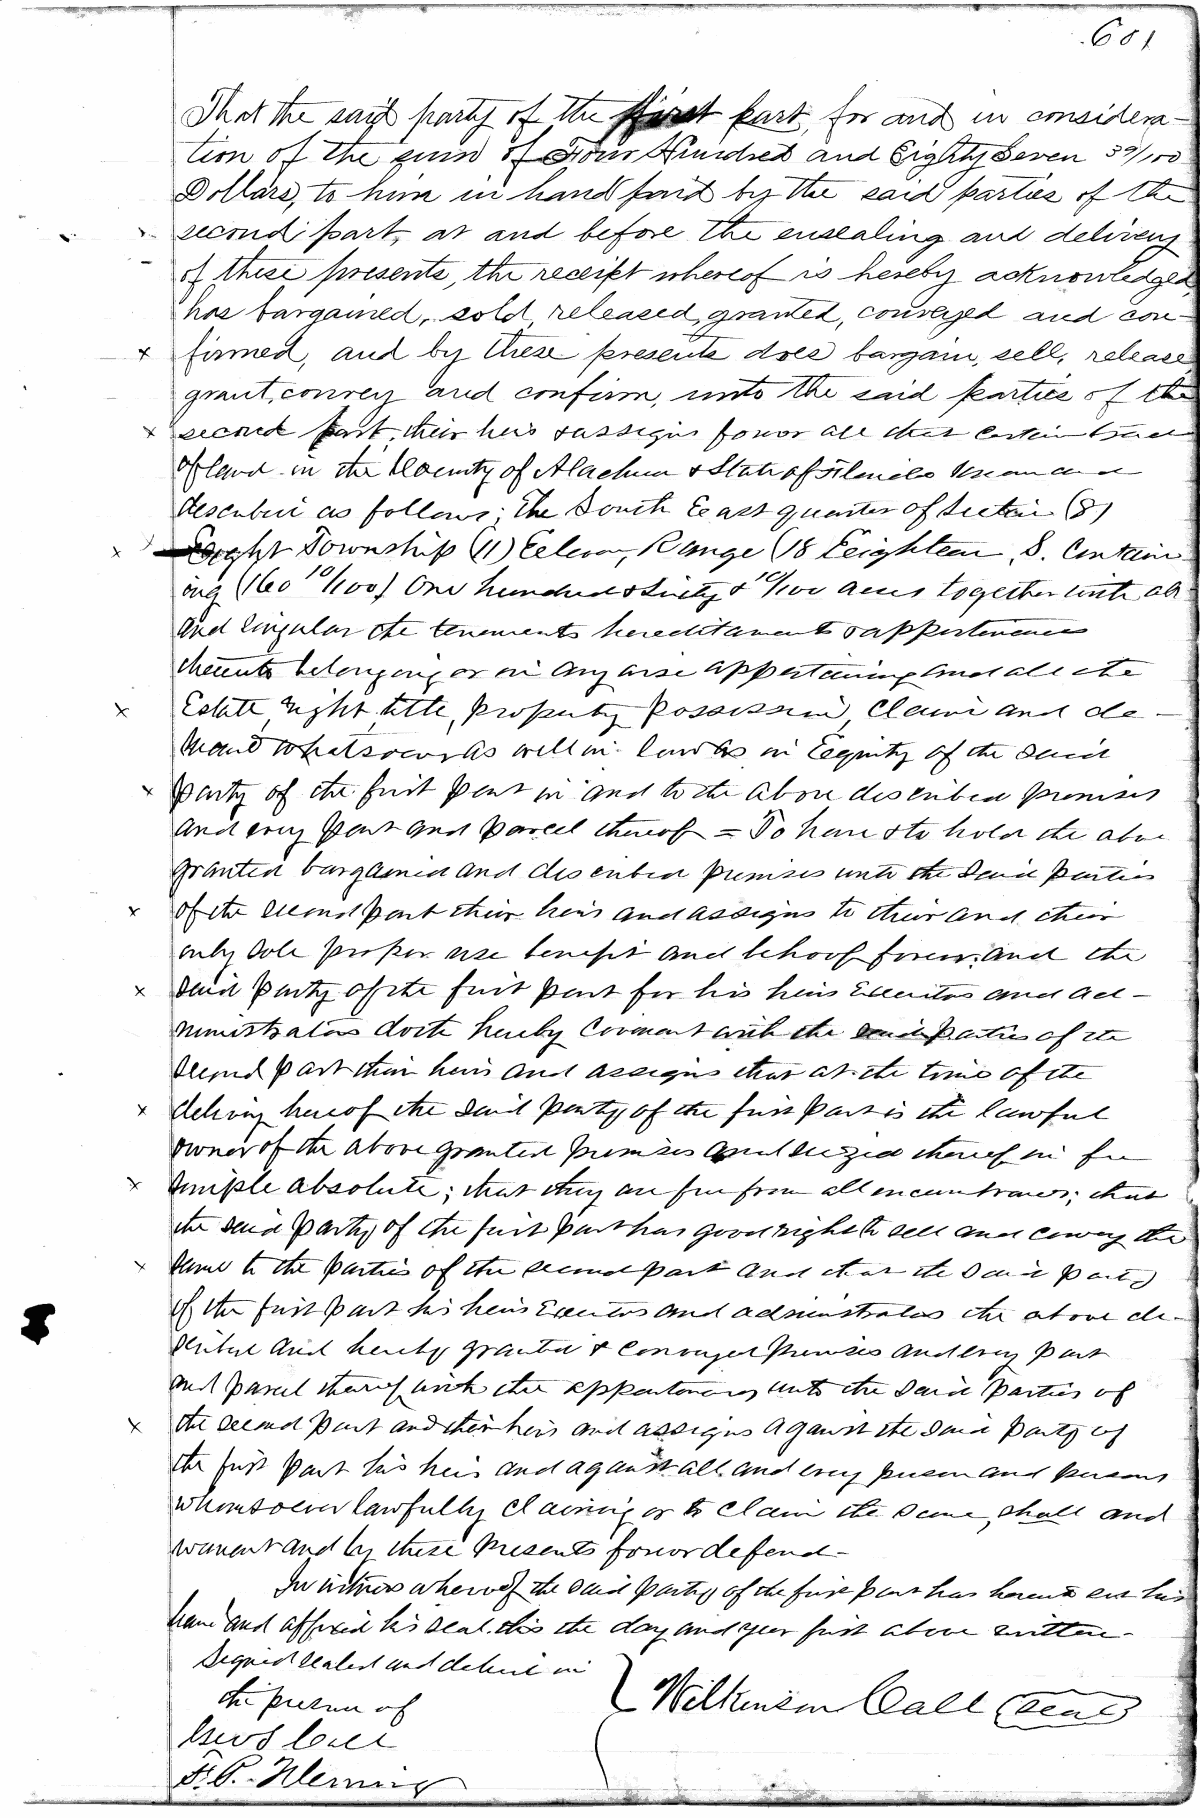 601
That the said party of the first part, for and in considera-
tion of the sum of Four Hundred and Eighty Seven 39/100
Dollars, to him in hand paid by the said parties of the
second part, at and before the ensealing and delivery
of these presents, the receipt whereof is hereby acknowledged,
has bargained, sold, released, granted, conveyed and con-
firmed, and by these presents does bargain, sell, release
grant, convey and confirm, unto the said parties of the
second part, their heirs & assigns forever all that certain tract
of land in the County of Alachua & State of Florida known and
described as follows; The South East quarter of Section (8)
Eight Township (11) Eleven, Range (18 Eeighteen, S. Contain
ing (160 10/100) One hundred & Sixty & 10/100 acres together with all
and singular the tenements hereditaments & appertenances
thereunto belonging or in any wise appertaining and all the
Estate, right, title, property possession, claim and de-
mand whatsoever as well in law as in Equity of the said
party of the first part in and to the above described premises
and every part and parcel thereof = To have & to hold the above
granted bargained and described premises unto the said parties
of the second part their heirs and assigns to their and their
only sole proper use benefit and behoof forever, and the
said party of the first part for his heirs Executors and ad-
ministrators doth hereby Covenant with the said parties of the
second part their heirs and assigns that at the time of the
delivery hereof the said party of the first part is the lawful
owner of the above granted premises and seized thereof in fee
simple absolute; that they are free from all encumbrances; that
the said party of the first part has good right to sell and convey the
same to the parties of the second part and that the said party
of the first part his heirs Executors and administrators the above de-
scribed and hereby granted & conveyed premises and every part
and parcel thereof with the appertenances unto the said Parties of
the second part and their heirs and assigns against the said party of
the first part his heirs and against all and every person and persons
whomsoever lawfully claiming or to claim the same, shall and
warrant and by these presents forever defend-
In witness whereof the said party of the first part has hereunto set his
hand and affixed his seal this the day and year first above written-
Signed sealed and deliver in
the presence of
Wilkinson Call (seal)
Call
F. P. Fleming